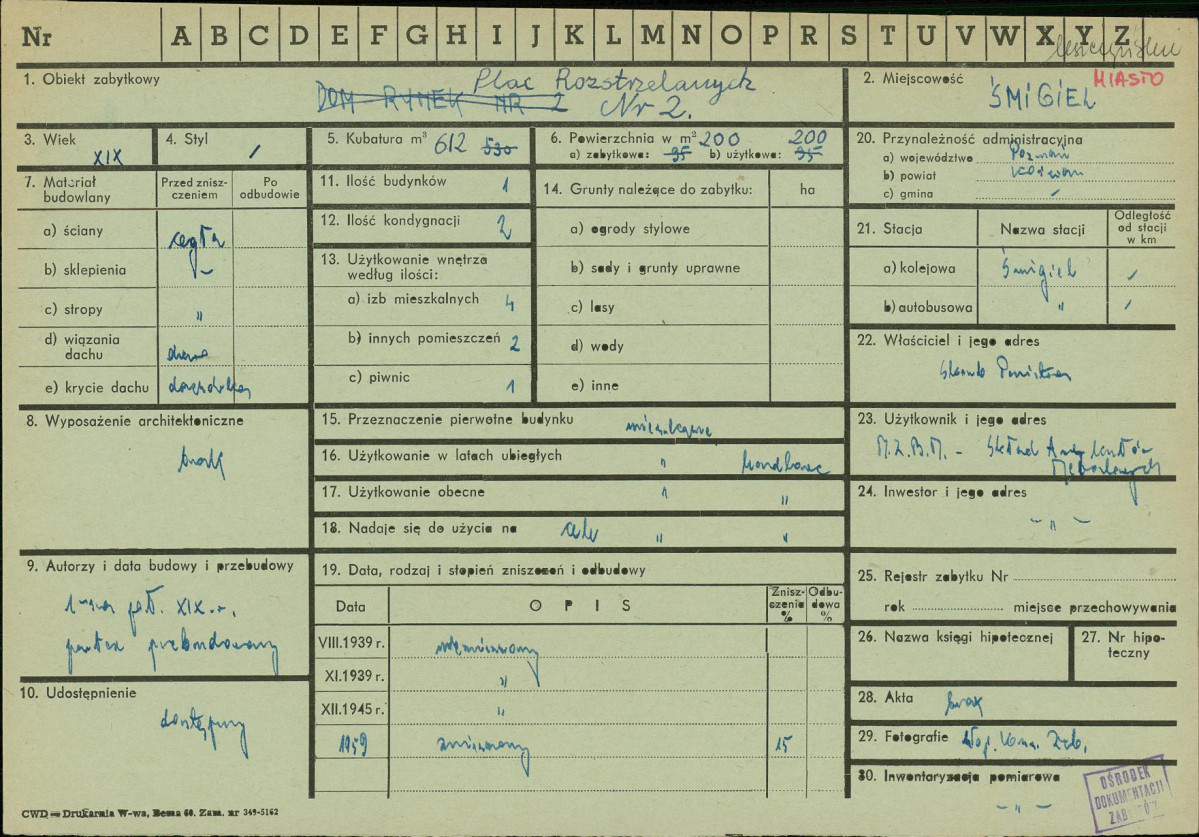 Nr A B C D E F G H I J K L M N O P R S T U V W X Y Z
1. Obiekt zabytkowy
DOM RYNEK NR 2
Plac Rozstrzelanych
Nr 2.
2. Miejscowość
MIASTO
ŚMIGIEL
3. Wiek
XIX
4. Styl
/
5. Kubatura m³ 612 530
6. Powierzchnia w m² 200 200
a) zabytkowa: 95 b) użytkowa: 95
20. Przynależność administracyjna
a) województwo Poznań
b) powiat Kościan
c) gmina /
7. Materiał budowlany
Przed zniszczeniem
Po odbudowie
a) ściany cegła
b) sklepienia –
c) stropy "
d) wiązania dachu drewno
e) krycie dachu dachówka
11. Ilość budynków 1
12. Ilość kondygnacji 2
13. Użytkowanie wnętrza według ilości:
a) izb mieszkalnych 4
b) innych pomieszczeń 2
c) piwnic 1
14. Grunty należące do zabytku: ha
a) ogrody stylowe
b) sady i grunty uprawne
c) lasy
d) wody
e) inne
21. Stacja
Nazwa stacji
Odległość od stacji w km
a) kolejowa Śmigiel /
b) autobusowa " /
22. Właściciel i jego adres
Skarb Państwa
8. Wyposażenie architektoniczne
brak
15. Przeznaczenie pierwotne budynku mieszkalne
16. Użytkowanie w latach ubiegłych " handlowe
17. Użytkowanie obecne " "
18. Nadaje się do użycia na cele " "
23. Użytkownik i jego adres
M.Z.B.M. – Skład Artykułów
24. Inwestor i jego adres
– " –
9. Autorzy i data budowy i przebudowy
poł. XIX w.
parter przebudowany
19. Data, rodzaj i stopień zniszczeń i odbudowy
Data
OPIS
Zniszczenia %
Odbudowa %
VIII.1939 r. niezniszczony
XI.1939 r. "
XII.1945 r. "
1959 zniszczony 15
25. Rejestr zabytku Nr
rok miejsce przechowywania
26. Nazwa księgi hipotecznej
27. Nr hipoteczny
10. Udostępnienie
dostępny
28. Akta brak
29. Fotografie Woj. Kons. Zab.
30. Inwentaryzacja pomiarowa
– " –
OŚRODEK
DOKUMENTACJI
ZABYTKÓW
CWD — Drukarnia W-wa, Bema 60. Zam. nr 349-5162